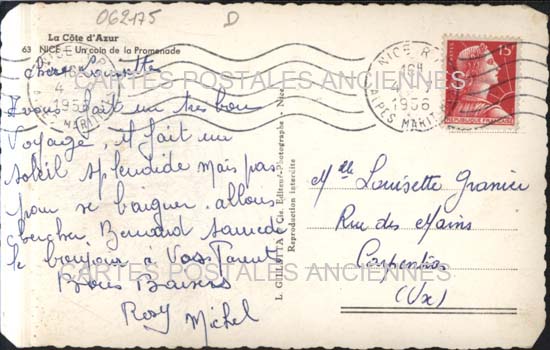 062175 D
La Côte d'Azur
63 NICE - Un coin de la Promenade
Chère Louisette
avons fait un très bon
voyage, il fait un
soleil splendide mais pas
pour se baigner. allons
chercher Bernard samedi
le bonjour à Vos Parents
Bons Baisers
Rosy Michel
L. GILLETTA & Cie, Editeur-Photographe - Nice
Reproduction interdite
NICE R.P.
16H
4 - 7
1956
ALPES MARIT
POSTES 15F
REPUBLIQUE FRANCAISE
Mlle Louisette Granier
Rue des Mains
Carpentras
(Vse)
CARTES POSTALES ANCIENNES
CARTES POSTALES ANCIENNES